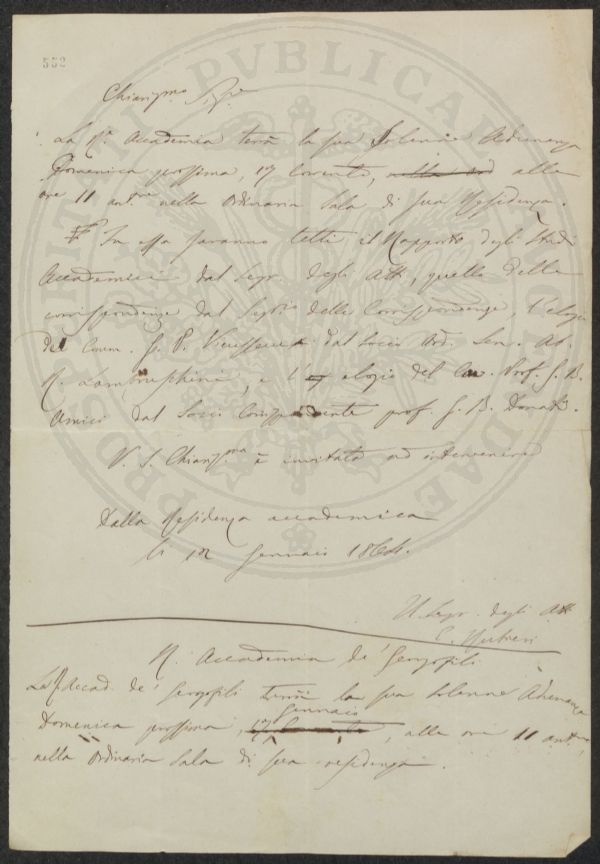 552
Chiarissmo Sigre
La R. Accademia terrà la sua Solenne Adunanza
Domenica prossima, 17 corrente, alle
ore 11 antne nella Ordinaria Sala di sua Residenza.
In essa saranno letti il Rapporto degli Studi
Accademici dal Segr. degli Atti, quello della
corrispondenza dal Segrio delle Corrispondenze, l'elogio
del Comm. G. P. Vieusseux dal Socio Ord. Sen. Ab.
R. Lambruschini, e l' elogio del Cav. Prof. G. B.
Amici dal Socio Corrispondente prof. G. B. Donati.
V. S. Chiarissma è invitata ad intervenire
Dalla Residenza accademica
li 12 Gennaio 1864.
Il Segr. degli Atti
E. Rubieri
R. Accademia de' Georgofili
La R. Accad. de' Georgofili terrà la sua solenne Adunanza
Gennaio
Domenica prossima, 17 corrente, alle ore 11 antne
nella Ordinaria Sala di sua residenza.